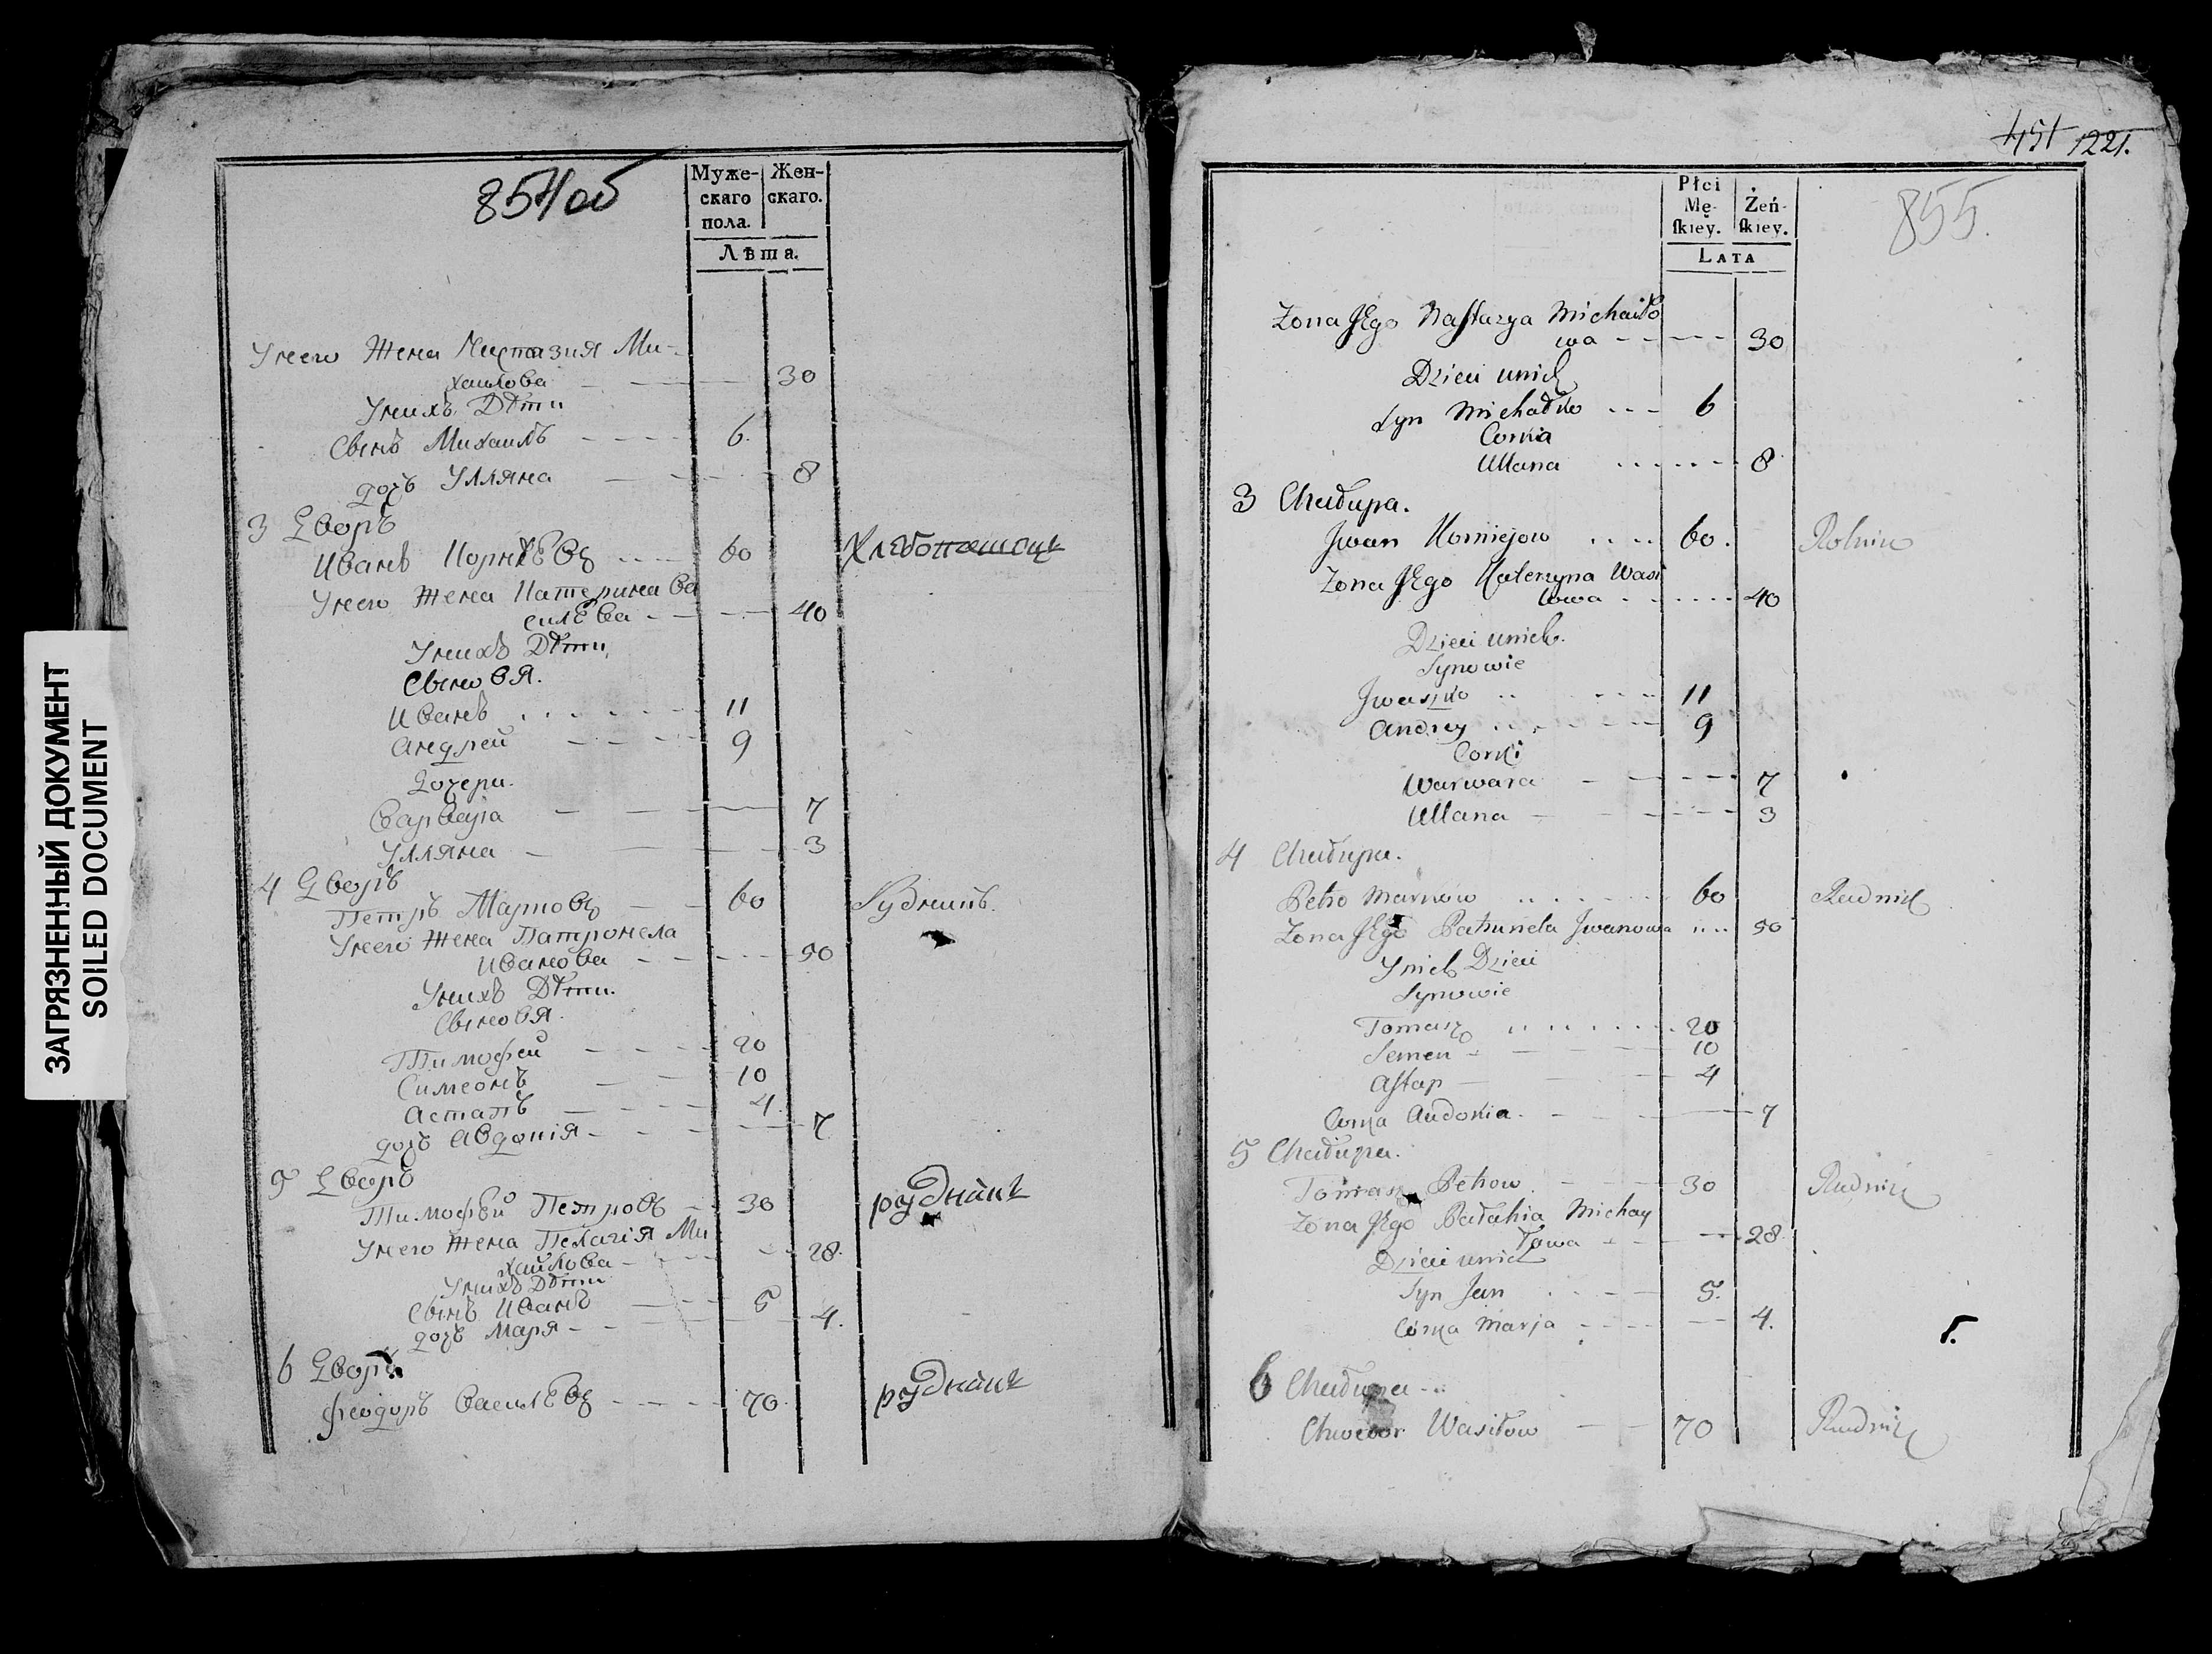 ЗАГРЯЗНЕННЫЙ ДОКУМЕНТ
SOILED DOCUMENT
854об
Муже-
скаго
пола.
Жен-
скаго.
Лѣта.
Унего Жена Настазия Ми-
хайлова 30
Унихъ Дѣти
Сынъ Михаилъ 6.
дочь Улляна 8
3 Дворъ
Иванъ Корнѣевъ 60 Хлебопашецъ
Унего Жена Катерина Ва
силѣва 40
Унихъ Дѣти
Сыновя.
Иванъ 11
Андрей 9
Дочери.
Варвара 7
Улляна 3
4 Дворъ
Петръ Марковъ 60 Рудникъ.
Унего Жена Патронела
Иванова 50
Унихъ Дѣти.
Сыновя.
Тимофей 20
Симеонъ 10
Астапъ 4.
дочь Авдокія 7
5 Дворъ
Тимофѣй Петровъ 30 рудникъ
Унего Жена Пелагія Ми
хайлова 28.
Унихъ Дѣти
Сынъ Иванъ 5
дочь Маря 4.
6 Дворъ
Феодоръ Василѣвъ 70. рудникъ
451 1221.
855.
Płci
Mę-
ſkiey.
Żeń-
ſkiey.
LATA
Zona Jego Naſtazya Michaiło
wa 30
Dzieci unich
Syn Michałko 6
Corka
Ullana 8
3 Chałupa.
Jwan Korniejow 60. Rolnik
Zona Jego Katerzyna Wasi
lowa 40
Dzieci unich.
Synowie
Jwaszko 11
Andrey 9
Corki
Warwara 7
Ullana 3
4 Chałupa.
Petro Markow 60 Rudnik
Zona Jego Patrunela Jwanowa 50
Ynich Dzieci
Synowie
Tomasz 20
Semen 10
Aſtap 4
Corka Audokia. 7
5 Chałupa.
Tomasz Petrow 30 Rudnik
Zona Jego Pałahia Michay
łowa 28
Dzieci unich
Syn Jan 5.
Córka Marja 4.
6 Chałupa
Chwedor Wasilow 70 Rudnik